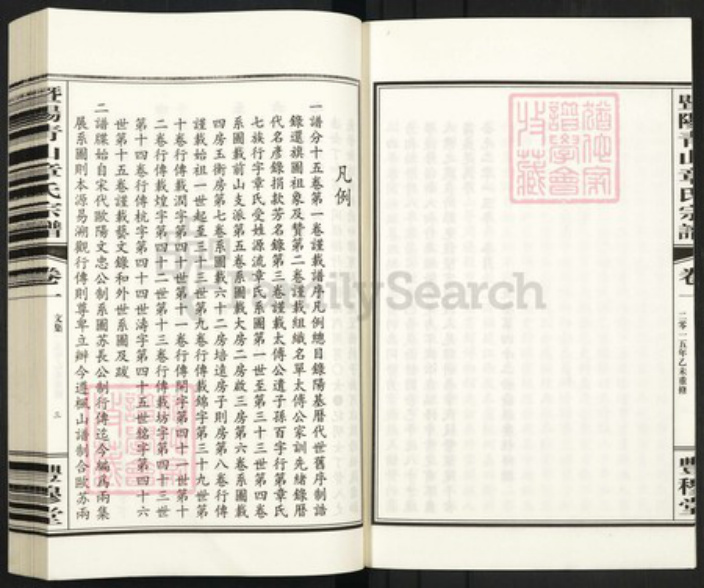 暨陽青山章氏宗譜
卷一
二零一五年乙未重修
豐穆堂
譜學會
收藏
凡例
一譜分十五卷第一卷謹載譜序凡例總目錄陽基曆代世舊序制誥
錄還旗圖祖象及贊第二卷謹載組織名單太傅公家訓先緒錄曆
代名彥錄捐款芳名錄第三卷謹載太傅公遺子孫百字行第章氏
七族行字章氏受姓源流章氏系圖第一世至第三十三世第四卷
系圖載前山支派第五卷系圖載大房二房啟三房第六卷系圖載
四房玉衡房第七卷系圖載六十二房培遠房子則房第八卷行傳
謹載始祖一世起至三十三世第九卷行傳載錦字第三十九世第
十卷行傳載潤字第四十世第十一卷行傳開字第四十一世第十
二卷行傳載煌字第四十二世第十三卷行傳載坊字第四十三世
第十四卷行傳杭字第四十四世濤字第四十五世銘字第四十六
世第十五卷謹載藝文錄和外世系圖及跋
二譜牒始自宋代歐陽文忠公制系圖蘇長公制行傳迄今編為兩集
展系圖則本源易溯觀行傳則尊卑立辦今遵楓山譜制合歐蘇兩
暨陽青山章氏宗譜
卷一
文集
三
豐穆堂
FamilySearch